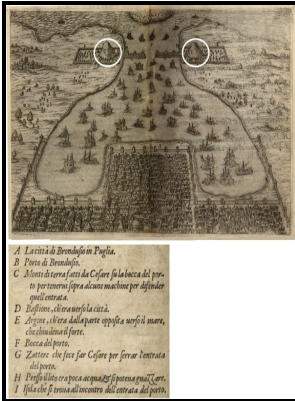 A La città di Brondusio in Puglia.
B Porto di Brondusio.
C Monti di terra fatti da Cesare su la bocca del por-
to per tenerui sopra alcune machine per difender
quell'entrata.
D Bastione, ch'era uerso la città.
E Argine, ch'era dalla parte opposita uerso il mare,
che chiudeua il forte.
F Bocca del porto.
G Zattere che fece far Cesare per serrar l'entrata
del porto.
H Presso il lito era poca acqua, et si poteua guazzare.
I Isola che si troua all'incontro dell'entrata del porto.